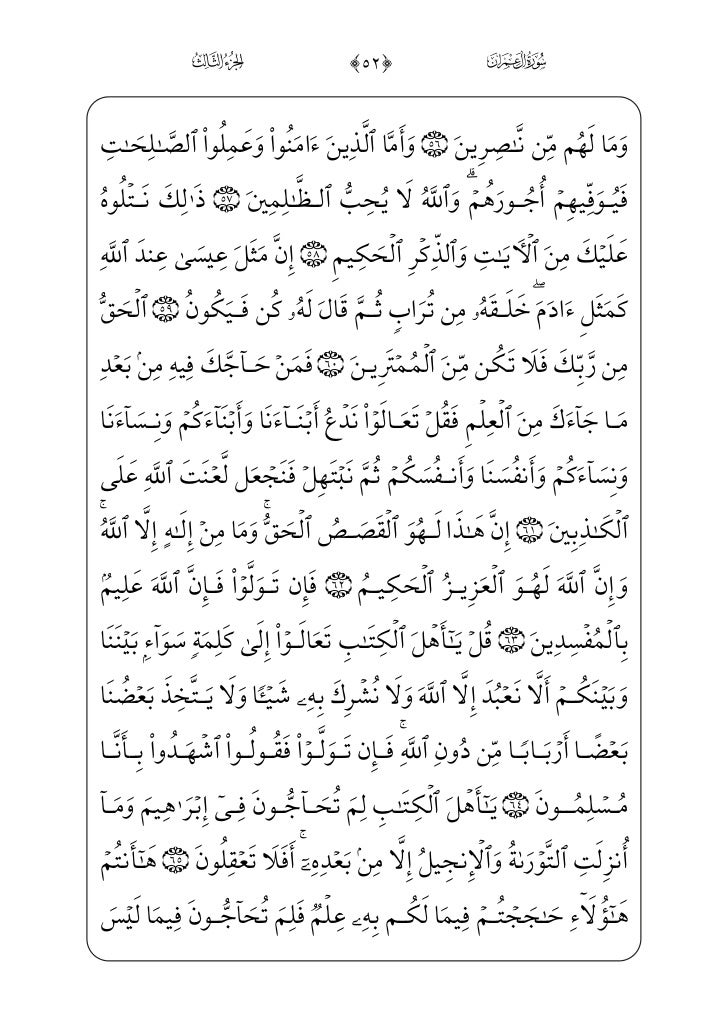 سُورَةُ آلِ عِمْرَانَ ﴿٥٢﴾ الجُزْءُ الثَّالِثُ
وَمَا لَهُم مِّن نَّـٰصِرِينَ ٥٦ وَأَمَّا ٱلَّذِينَ ءَامَنُوا۟ وَعَمِلُوا۟ ٱلصَّـٰلِحَـٰتِ
فَيُوَفِّيهِمْ أُجُورَهُمْ ۗ وَٱللَّهُ لَا يُحِبُّ ٱلظَّـٰلِمِينَ ٥٧ ذَٰلِكَ نَتْلُوهُ
عَلَيْكَ مِنَ ٱلْـَٔايَـٰتِ وَٱلذِّكْرِ ٱلْحَكِيمِ ٥٨ إِنَّ مَثَلَ عِيسَىٰ عِندَ ٱللَّهِ
كَمَثَلِ ءَادَمَ ۖ خَلَقَهُۥ مِن تُرَابٍ ثُمَّ قَالَ لَهُۥ كُن فَيَكُونُ ٥٩ ٱلْحَقُّ
مِن رَّبِّكَ فَلَا تَكُن مِّنَ ٱلْمُمْتَرِينَ ٦٠ فَمَنْ حَآجَّكَ فِيهِ مِنۢ بَعْدِ
مَا جَآءَكَ مِنَ ٱلْعِلْمِ فَقُلْ تَعَالَوْا۟ نَدْعُ أَبْنَآءَنَا وَأَبْنَآءَكُمْ وَنِسَآءَنَا
وَنِسَآءَكُمْ وَأَنفُسَنَا وَأَنفُسَكُمْ ثُمَّ نَبْتَهِلْ فَنَجْعَل لَّعْنَتَ ٱللَّهِ عَلَى
ٱلْكَـٰذِبِينَ ٦١ إِنَّ هَـٰذَا لَهُوَ ٱلْقَصَصُ ٱلْحَقُّ ۚ وَمَا مِنْ إِلَـٰهٍ إِلَّا ٱللَّهُ ۚ
وَإِنَّ ٱللَّهَ لَهُوَ ٱلْعَزِيزُ ٱلْحَكِيمُ ٦٢ فَإِن تَوَلَّوْا۟ فَإِنَّ ٱللَّهَ عَلِيمٌۢ
بِٱلْمُفْسِدِينَ ٦٣ قُلْ يَـٰٓأَهْلَ ٱلْكِتَـٰبِ تَعَالَوْا۟ إِلَىٰ كَلِمَةٍ سَوَآءٍۭ بَيْنَنَا
وَبَيْنَكُمْ أَلَّا نَعْبُدَ إِلَّا ٱللَّهَ وَلَا نُشْرِكَ بِهِۦ شَيْـًٔا وَلَا يَتَّخِذَ بَعْضُنَا
بَعْضًا أَرْبَابًا مِّن دُونِ ٱللَّهِ ۚ فَإِن تَوَلَّوْا۟ فَقُولُوا۟ ٱشْهَدُوا۟ بِأَنَّا
مُسْلِمُونَ ٦٤ يَـٰٓأَهْلَ ٱلْكِتَـٰبِ لِمَ تُحَآجُّونَ فِىٓ إِبْرَٰهِيمَ وَمَآ
أُنزِلَتِ ٱلتَّوْرَىٰةُ وَٱلْإِنجِيلُ إِلَّا مِنۢ بَعْدِهِۦٓ ۚ أَفَلَا تَعْقِلُونَ ٦٥ هَـٰٓأَنتُمْ
هَـٰٓؤُلَآءِ حَـٰجَجْتُمْ فِيمَا لَكُم بِهِۦ عِلْمٌ فَلِمَ تُحَآجُّونَ فِيمَا لَيْسَ